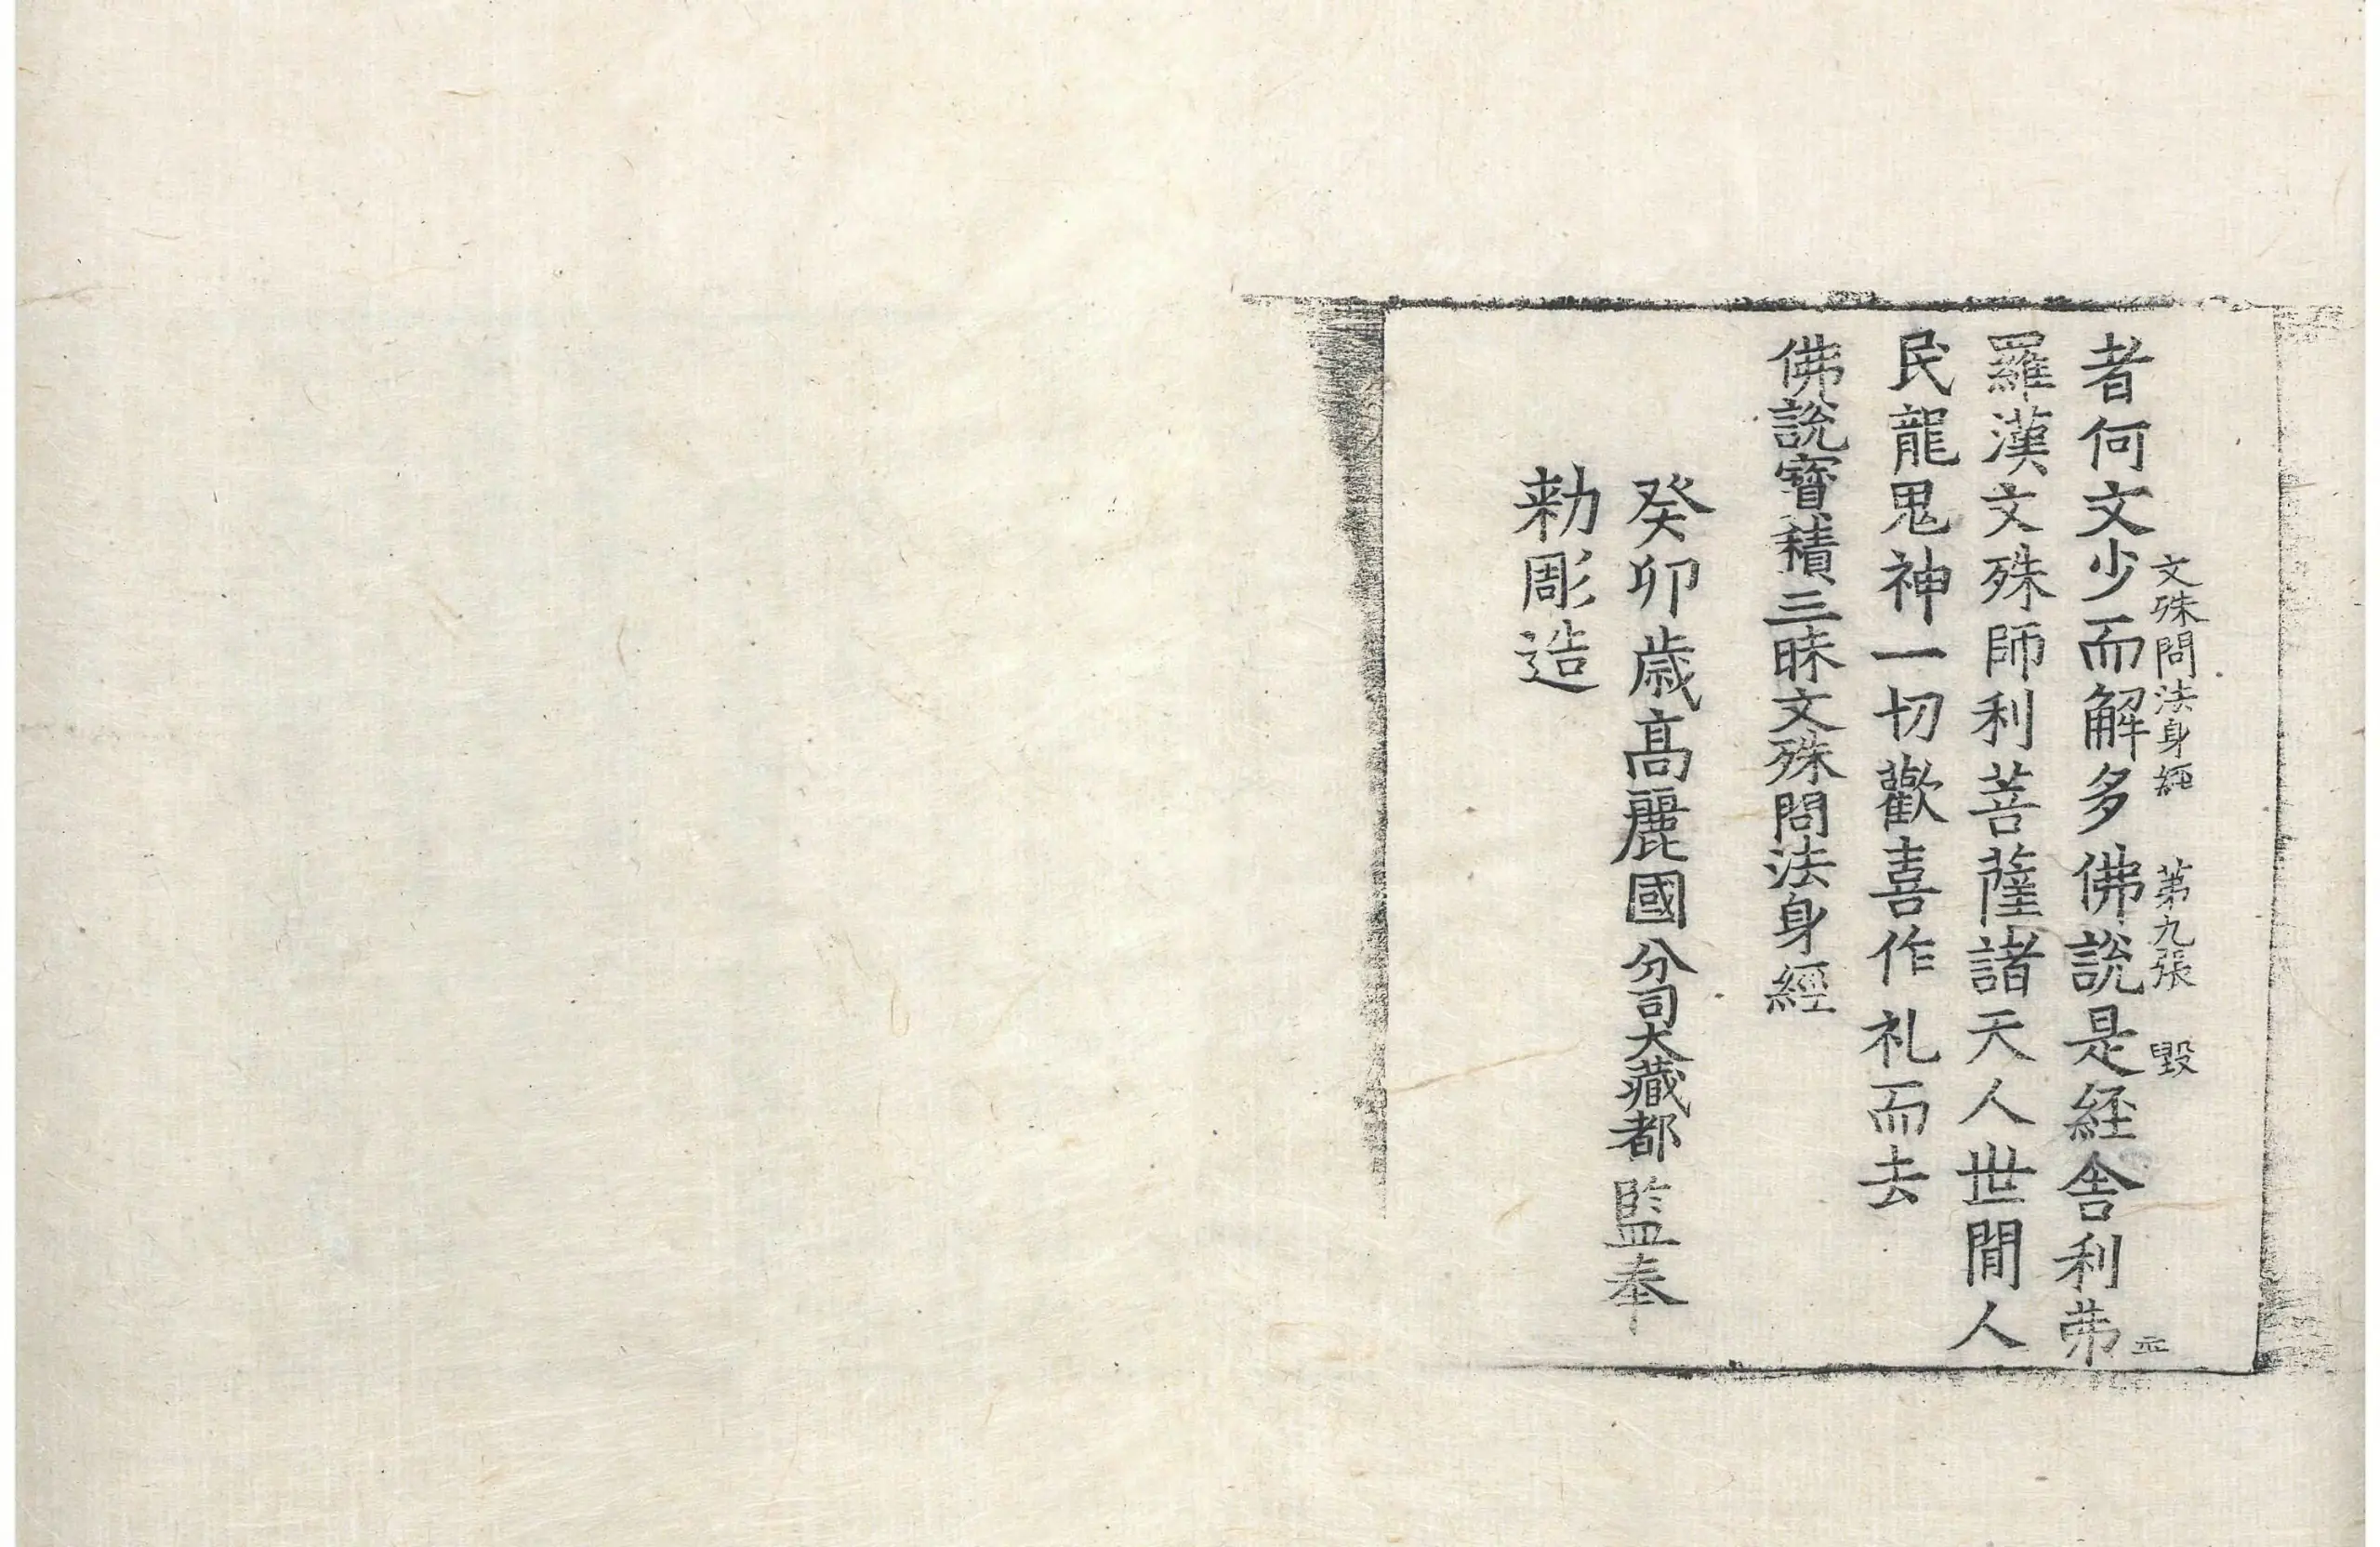 文殊問法身經 第九張 毀
者何文少而解多佛說是經舍利弗
羅漢文殊師利菩薩諸天人世間人
民龍鬼神一切歡喜作礼而去
佛說寶積三昧文殊問法身經
癸卯歲高麗國分司大藏都監奉
勅彫造